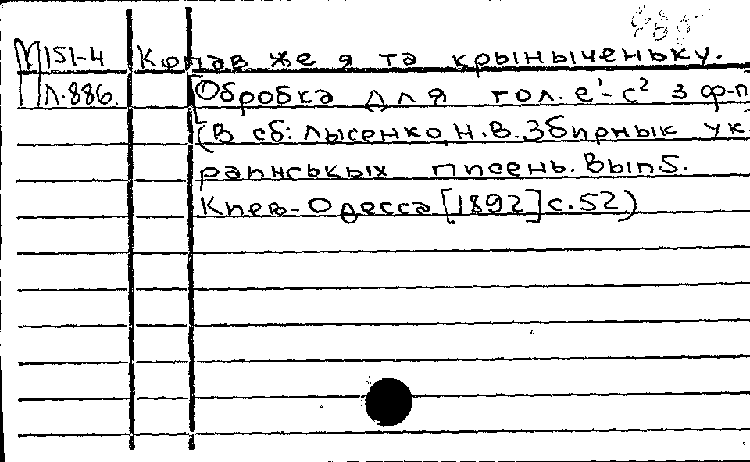 М151-4 Копав же я та крыныченьку.
Л.886. [Обробка для гол. е¹-с² з ф-п
(В сб: Лысенко, Н.В. Збирнык ук
раинськых писень. Вып 5.
Киев-Одесса [1892] с.52)